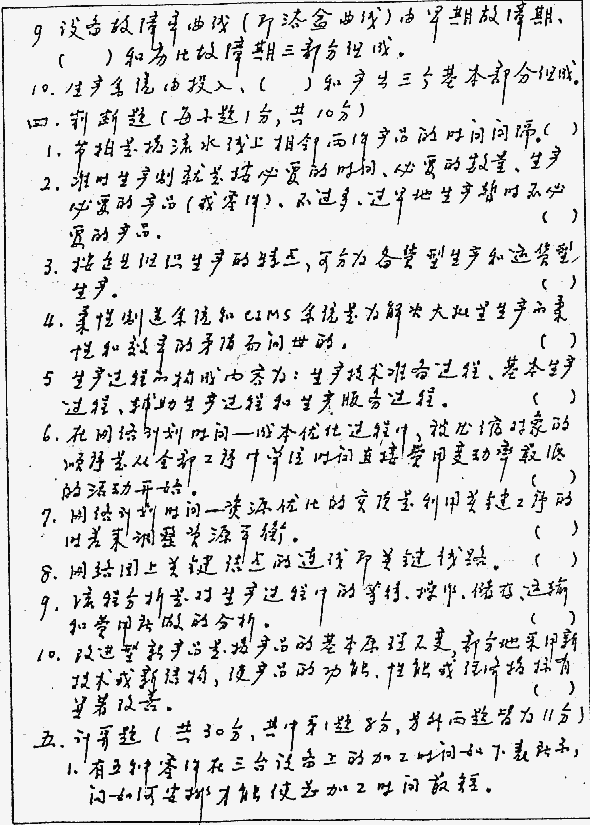 9 设备故障率曲线(即浴盆曲线)由早期故障期、
( )和劣化故障期三部分组成。
10. 生产系统由投入、( )和产出三个基本部分组成。
四. 判断题(每小题1分,共10分)
1. 节拍是指流水线上相邻两件产品的时间间隔。( )
2. 准时生产制就是按必要的时间、必要的数量、生产
必要的产品(或零件)、不过多、过早地生产暂时不必
要的产品。 ( )
3. 按企业组织生产的特点,可分为备货型生产和进货型
生产。 ( )
4. 柔性制造系统和CIMS系统是为解决大批量生产的柔
性和效率的矛盾而问世的。 ( )
5 生产过程的构成内容为:生产技术准备过程、基本生产
过程、辅助生产过程和生产服务过程。 ( )
6. 在网络计划时间—成本优化过程中,被压缩对象的
顺序是从全部工序中单位时间直接费用变动率最低
的活动开始。 ( )
7. 网络计划时间—资源优化的实质是利用关键工序的
时差来调整资源平衡。 ( )
8. 网络图上关键结点的连线即关键线路。 ( )
9. 流程分析是对生产过程中的等待、操作、储存、运输
和费用所做的分析。 ( )
10. 改进型新产品是指产品的基本原理不变,部分地采用新
技术或新结构,使产品的功能、性能或经济指标有
显著改善。 ( )
五. 计算题(共30分,其中第1题8分,另外两题皆为11分)
1. 有五种零件在三台设备上的加工时间如下表所示,
问如何安排才能使总加工时间最短。